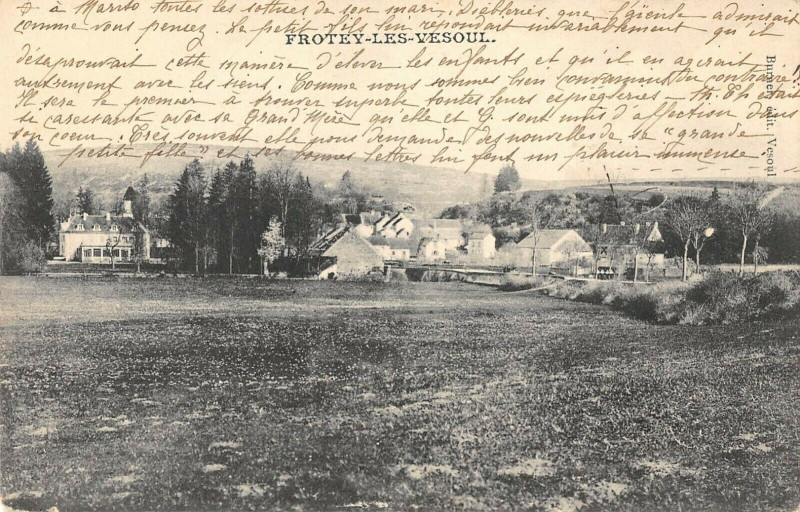 à toutes les sottises de son mari. Diableries que l'aïeule admirait
comme vous pensez. Le petit fils lui répondait invariablement qu'il
FROTEY-LES-VESOUL.
désapprouvait cette manière d'élever les enfants et qu'il en agirait
autrement avec les siens. Comme nous sommes bien convaincus du contraire
Il sera le premier à trouver superbe toutes leurs espiègleries -
se caressante avec sa Grand'Mère qu'elle et G. sont unis d'affection dans
son coeur. Très souvent elle nous demande des nouvelles de sa "grande
petite fille" et ses bonnes lettres lui font un plaisir immense
édit. Vesoul